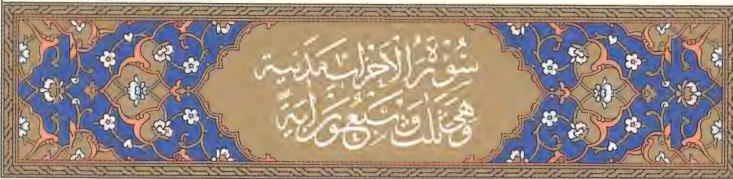 سُورَةُ الْأَحْزَابِ مَدَنِيَّة
وَهِيَ ثَلَاثٌ وَسَبْعُونَ آيَةً